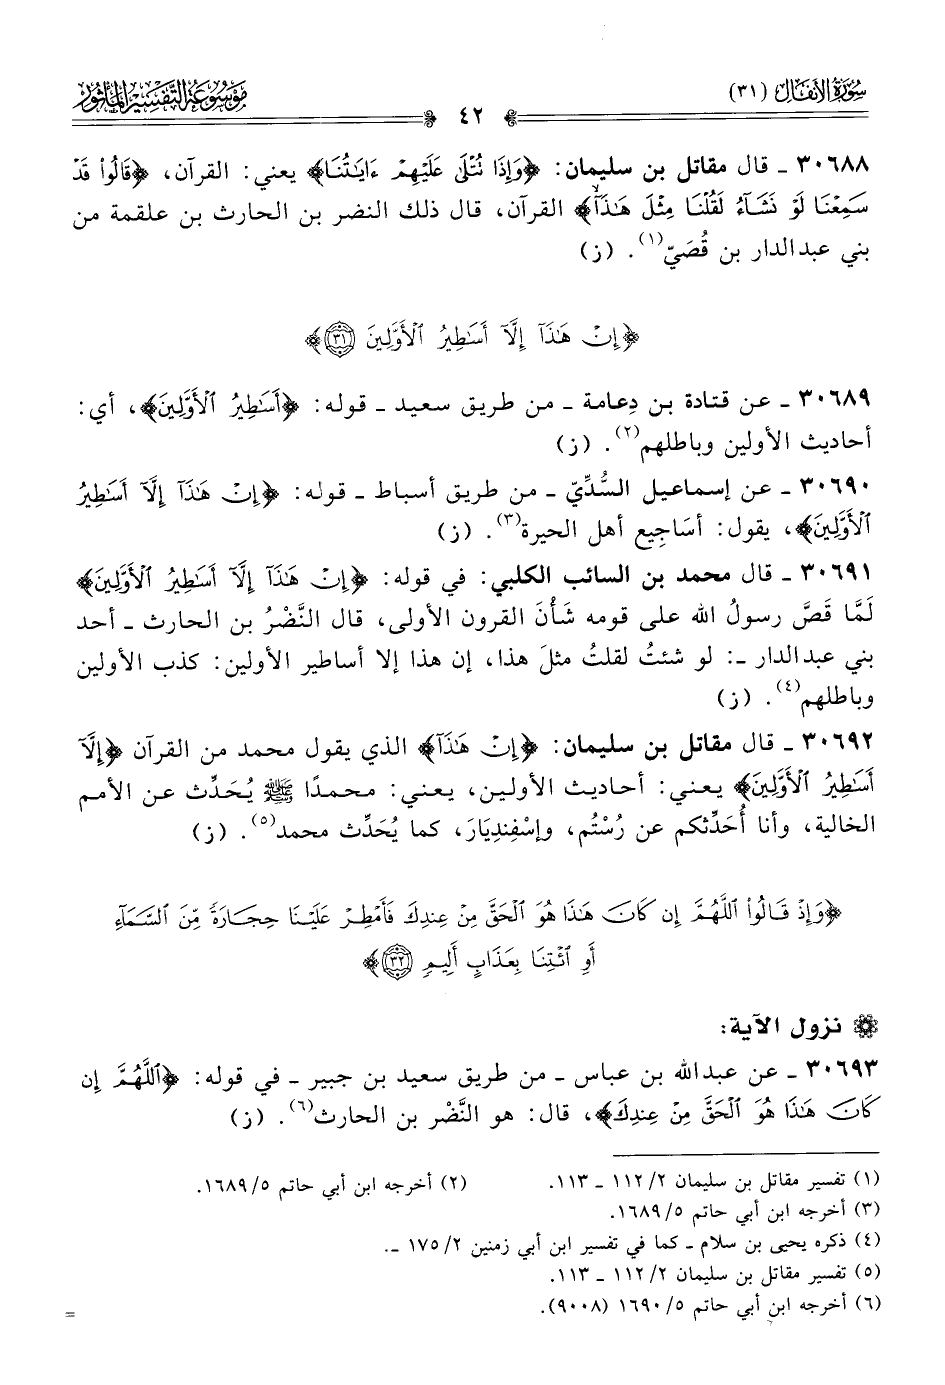 سُورَةُ الأَنفَال (٣١)
٤٢
مَوْسُوعَة التَّفْسِيرِ المَأْثُور
٣٠٦٨٨ ـ قال مقاتل بن سليمان: ﴿وَإِذَا تُتْلَى عَلَيْهِمْ ءَايَتُنَا﴾ يعني: القرآن، ﴿قَالُوا۟ قَدْ
سَمِعْنَا لَوْ نَشَآءُ لَقُلْنَا مِثْلَ هَٰذَآ﴾ القرآن، قال ذلك النضر بن الحارث بن علقمة من
بني عبدالدار بن قُصَيّ(١). (ز)
﴿إِنْ هَٰذَآ إِلَّآ أَسَٰطِيرُ ٱلْأَوَّلِينَ ٣١﴾
٣٠٦٨٩ ـ عن قتادة بن دِعامة ـ من طريق سعيد ـ قوله: ﴿أَسَٰطِيرُ ٱلْأَوَّلِينَ﴾، أي:
أحاديث الأولين وباطلهم(٢). (ز)
٣٠٦٩٠ ـ عن إسماعيل السُّدِّيّ ـ من طريق أسباط ـ قوله: ﴿إِنْ هَٰذَآ إِلَّآ أَسَٰطِيرُ
ٱلْأَوَّلِينَ﴾، يقول: أسَاجِيع أهل الحيرة(٣). (ز)
٣٠٦٩١ ـ قال محمد بن السائب الكلبي: في قوله: ﴿إِنْ هَٰذَآ إِلَّآ أَسَٰطِيرُ ٱلْأَوَّلِينَ﴾
لَمَّا قَصَّ رسولُ الله على قومه شَأْنَ القرون الأولى، قال النَّضْرُ بن الحارث ـ أحد
بني عبدالدار ـ: لو شئتُ لقلتُ مثلَ هذا، إن هذا إلا أساطير الأولين: كذب الأولين
وباطلهم(٤). (ز)
٣٠٦٩٢ ـ قال مقاتل بن سليمان: ﴿إِنْ هَٰذَآ﴾ الذي يقول محمد من القرآن ﴿إِلَّآ
أَسَٰطِيرُ ٱلْأَوَّلِينَ﴾ يعني: أحاديث الأولين، يعني: محمدًا ﷺ يُحَدِّث عن الأمم
الخالية، وأنا أُحَدِّثكم عن رُسْتُم، وإسْفِندِيَارَ، كما يُحَدِّث محمد(٥). (ز)
﴿وَإِذْ قَالُوا۟ ٱللَّهُمَّ إِن كَانَ هَٰذَا هُوَ ٱلْحَقَّ مِنْ عِندِكَ فَأَمْطِرْ عَلَيْنَا حِجَارَةً مِّنَ ٱلسَّمَآءِ
أَوِ ٱئْتِنَا بِعَذَابٍ أَلِيمٍ ٣٢﴾
نزول الآية:
٣٠٦٩٣ ـ عن عبدالله بن عباس ـ من طريق سعيد بن جبير ـ في قوله: ﴿ٱللَّهُمَّ إِن
كَانَ هَٰذَا هُوَ ٱلْحَقَّ مِنْ عِندِكَ﴾، قال: هو النَّضْر بن الحارث(٦). (ز)
(١) تفسير مقاتل بن سليمان ٢/ ١١٢ ـ ١١٣. (٢) أخرجه ابن أبي حاتم ٥/ ١٦٨٩.
(٣) أخرجه ابن أبي حاتم ٥/ ١٦٨٩.
(٤) ذكره يحيى بن سلام ـ كما في تفسير ابن أبي زمنين ٢/ ١٧٥ ـ.
(٥) تفسير مقاتل بن سليمان ٢/ ١١٢ ـ ١١٣.
(٦) أخرجه ابن أبي حاتم ٥/ ١٦٩٠ (٩٠٠٨).
=